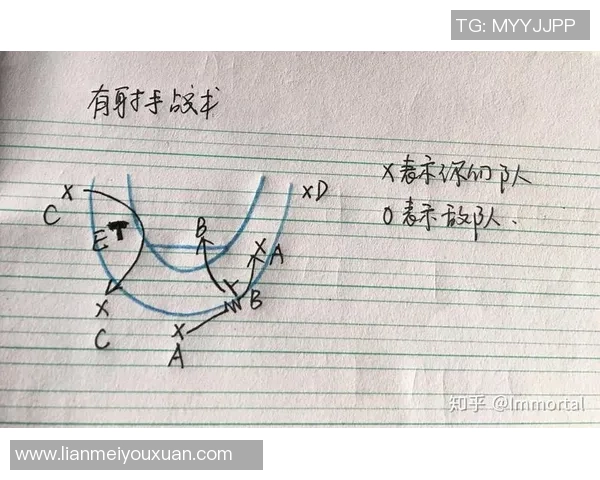 TG: MYYJJPP
有射手战术
X表示你的队
O表示敌队.
X
C
E
B
X
A
X D
X
C
B
X
A
知乎 @Immortal
www.lianmeiyouxuan.com